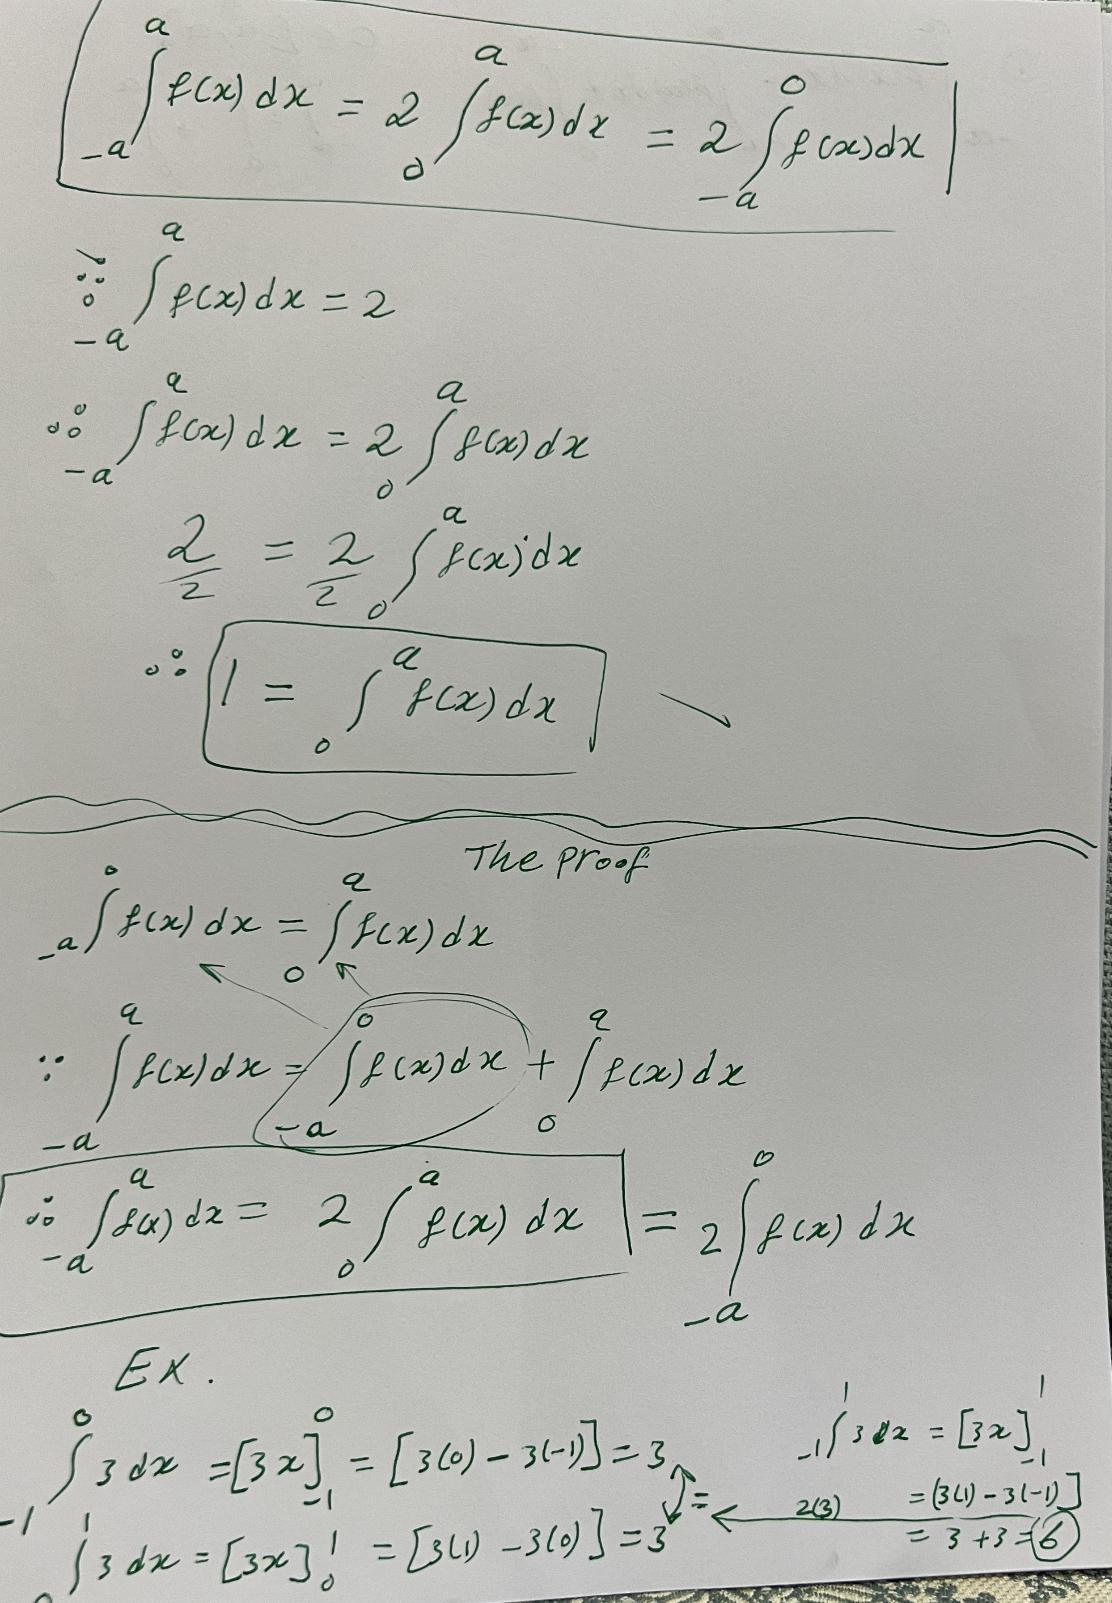 ∫_{-a}^{a} f(x) dx = 2 ∫_{0}^{a} f(x) dx = 2 ∫_{-a}^{0} f(x) dx
∵ ∫_{-a}^{a} f(x) dx = 2
∴ ∫_{-a}^{a} f(x) dx = 2 ∫_{0}^{a} f(x) dx
2/2 = 2/2 ∫_{0}^{a} f(x) dx
∴ 1 = ∫_{0}^{a} f(x) dx
The Proof
∫_{-a}^{0} f(x) dx = ∫_{0}^{a} f(x) dx
∵ ∫_{-a}^{a} f(x) dx = ∫_{-a}^{0} f(x) dx + ∫_{0}^{a} f(x) dx
∴ ∫_{-a}^{a} f(x) dx = 2 ∫_{0}^{a} f(x) dx = 2 ∫_{-a}^{0} f(x) dx
EX.
∫_{-1}^{0} 3 dx = [3x]_{-1}^{0} = [3(0) - 3(-1)] = 3
∫_{0}^{1} 3 dx = [3x]_{0}^{1} = [3(1) - 3(0)] = 3
=
2(3)
∫_{-1}^{1} 3 dx = [3x]_{-1}^{1}
= (3(1) - 3(-1)]
= 3 + 3 = 6